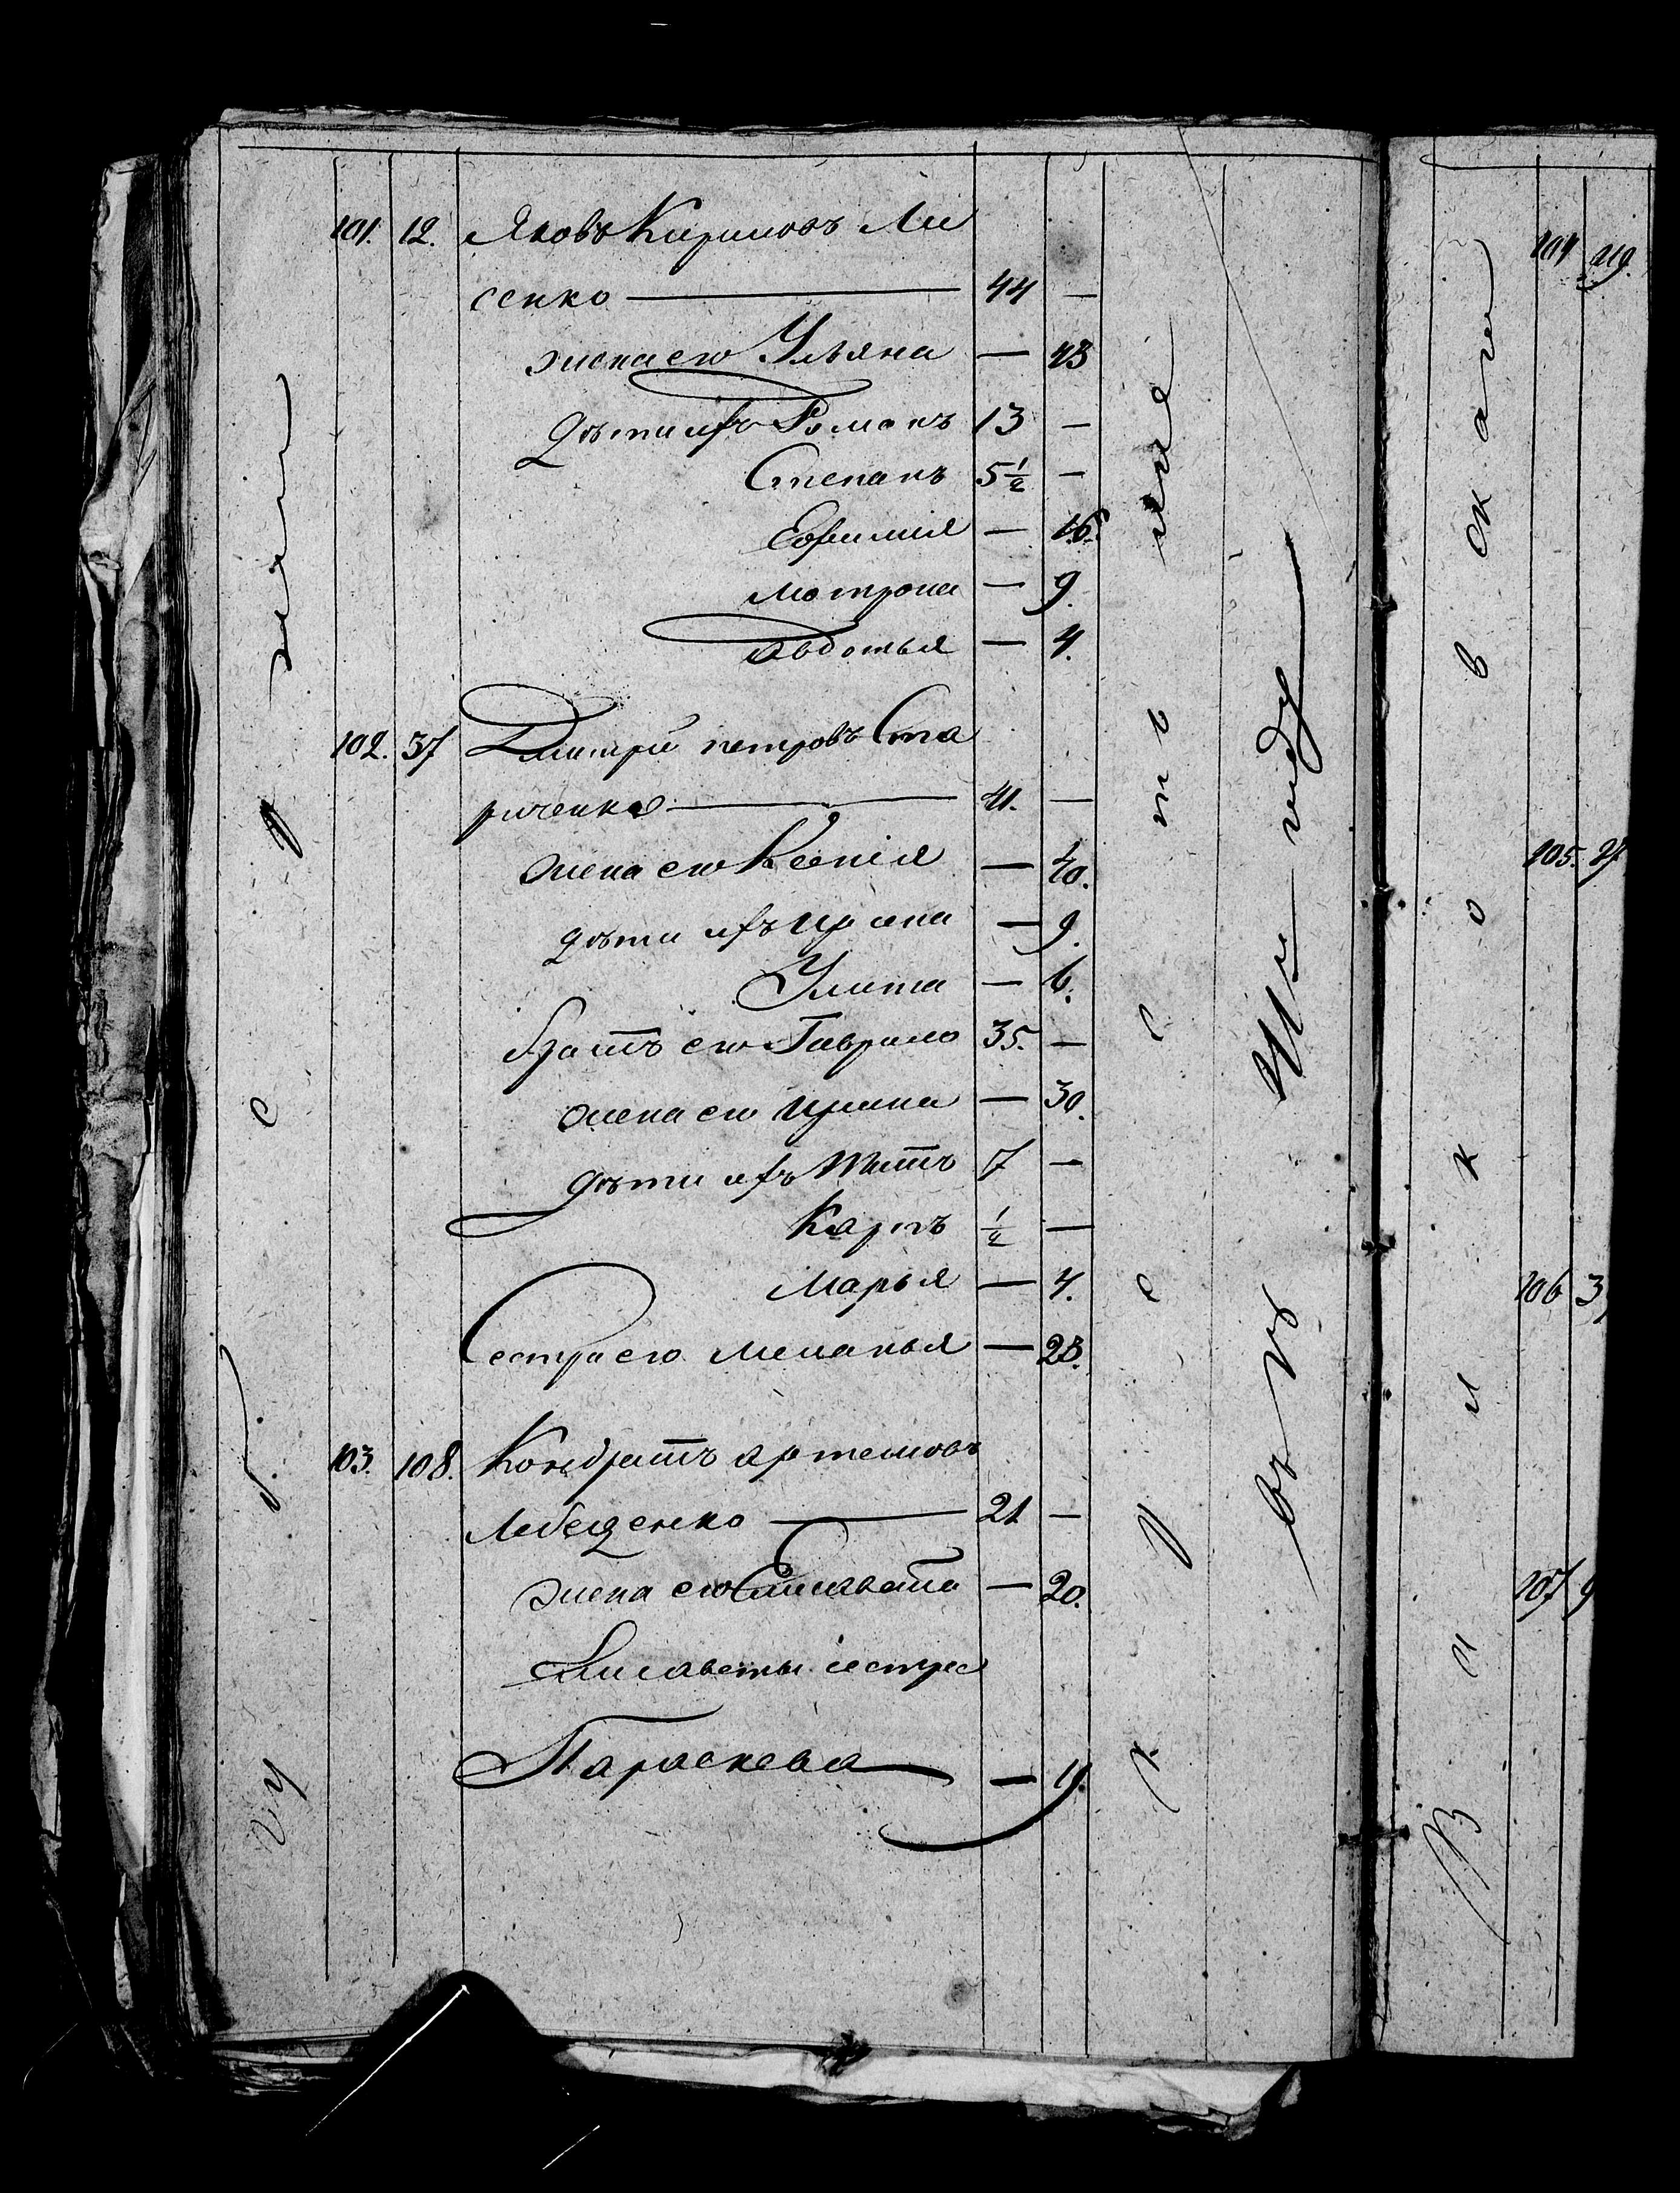 101. 12. Яковъ Кириловъ Ли
сенко — 44 —
жена его Ульяна — 43
дѣти ихъ Романъ 13 —
Степанъ 5 1/2 —
Ефимия — 16.
Мотрона — 9.
Авдотья — 4.
102. 37 Дмитрий петровъ Ста
риченко — 41. —
жена его Ксенія — 40.
дѣти ихъ Ирина — 9.
Улита — 6.
братъ его Гаврило 35. —
жена его Ирина — 30.
дѣти ихъ Титъ 7 —
Карпъ 1/2 —
Марья — 4.
Сестра его Меланья — 23.
103. 108. Кондратъ артемовъ
Лебеденко — 21 —
жена его Елисавета — 20.
Елисаветы сестра
Параскева — 19.
въ
104 219.
105. 27
106 3
107 9